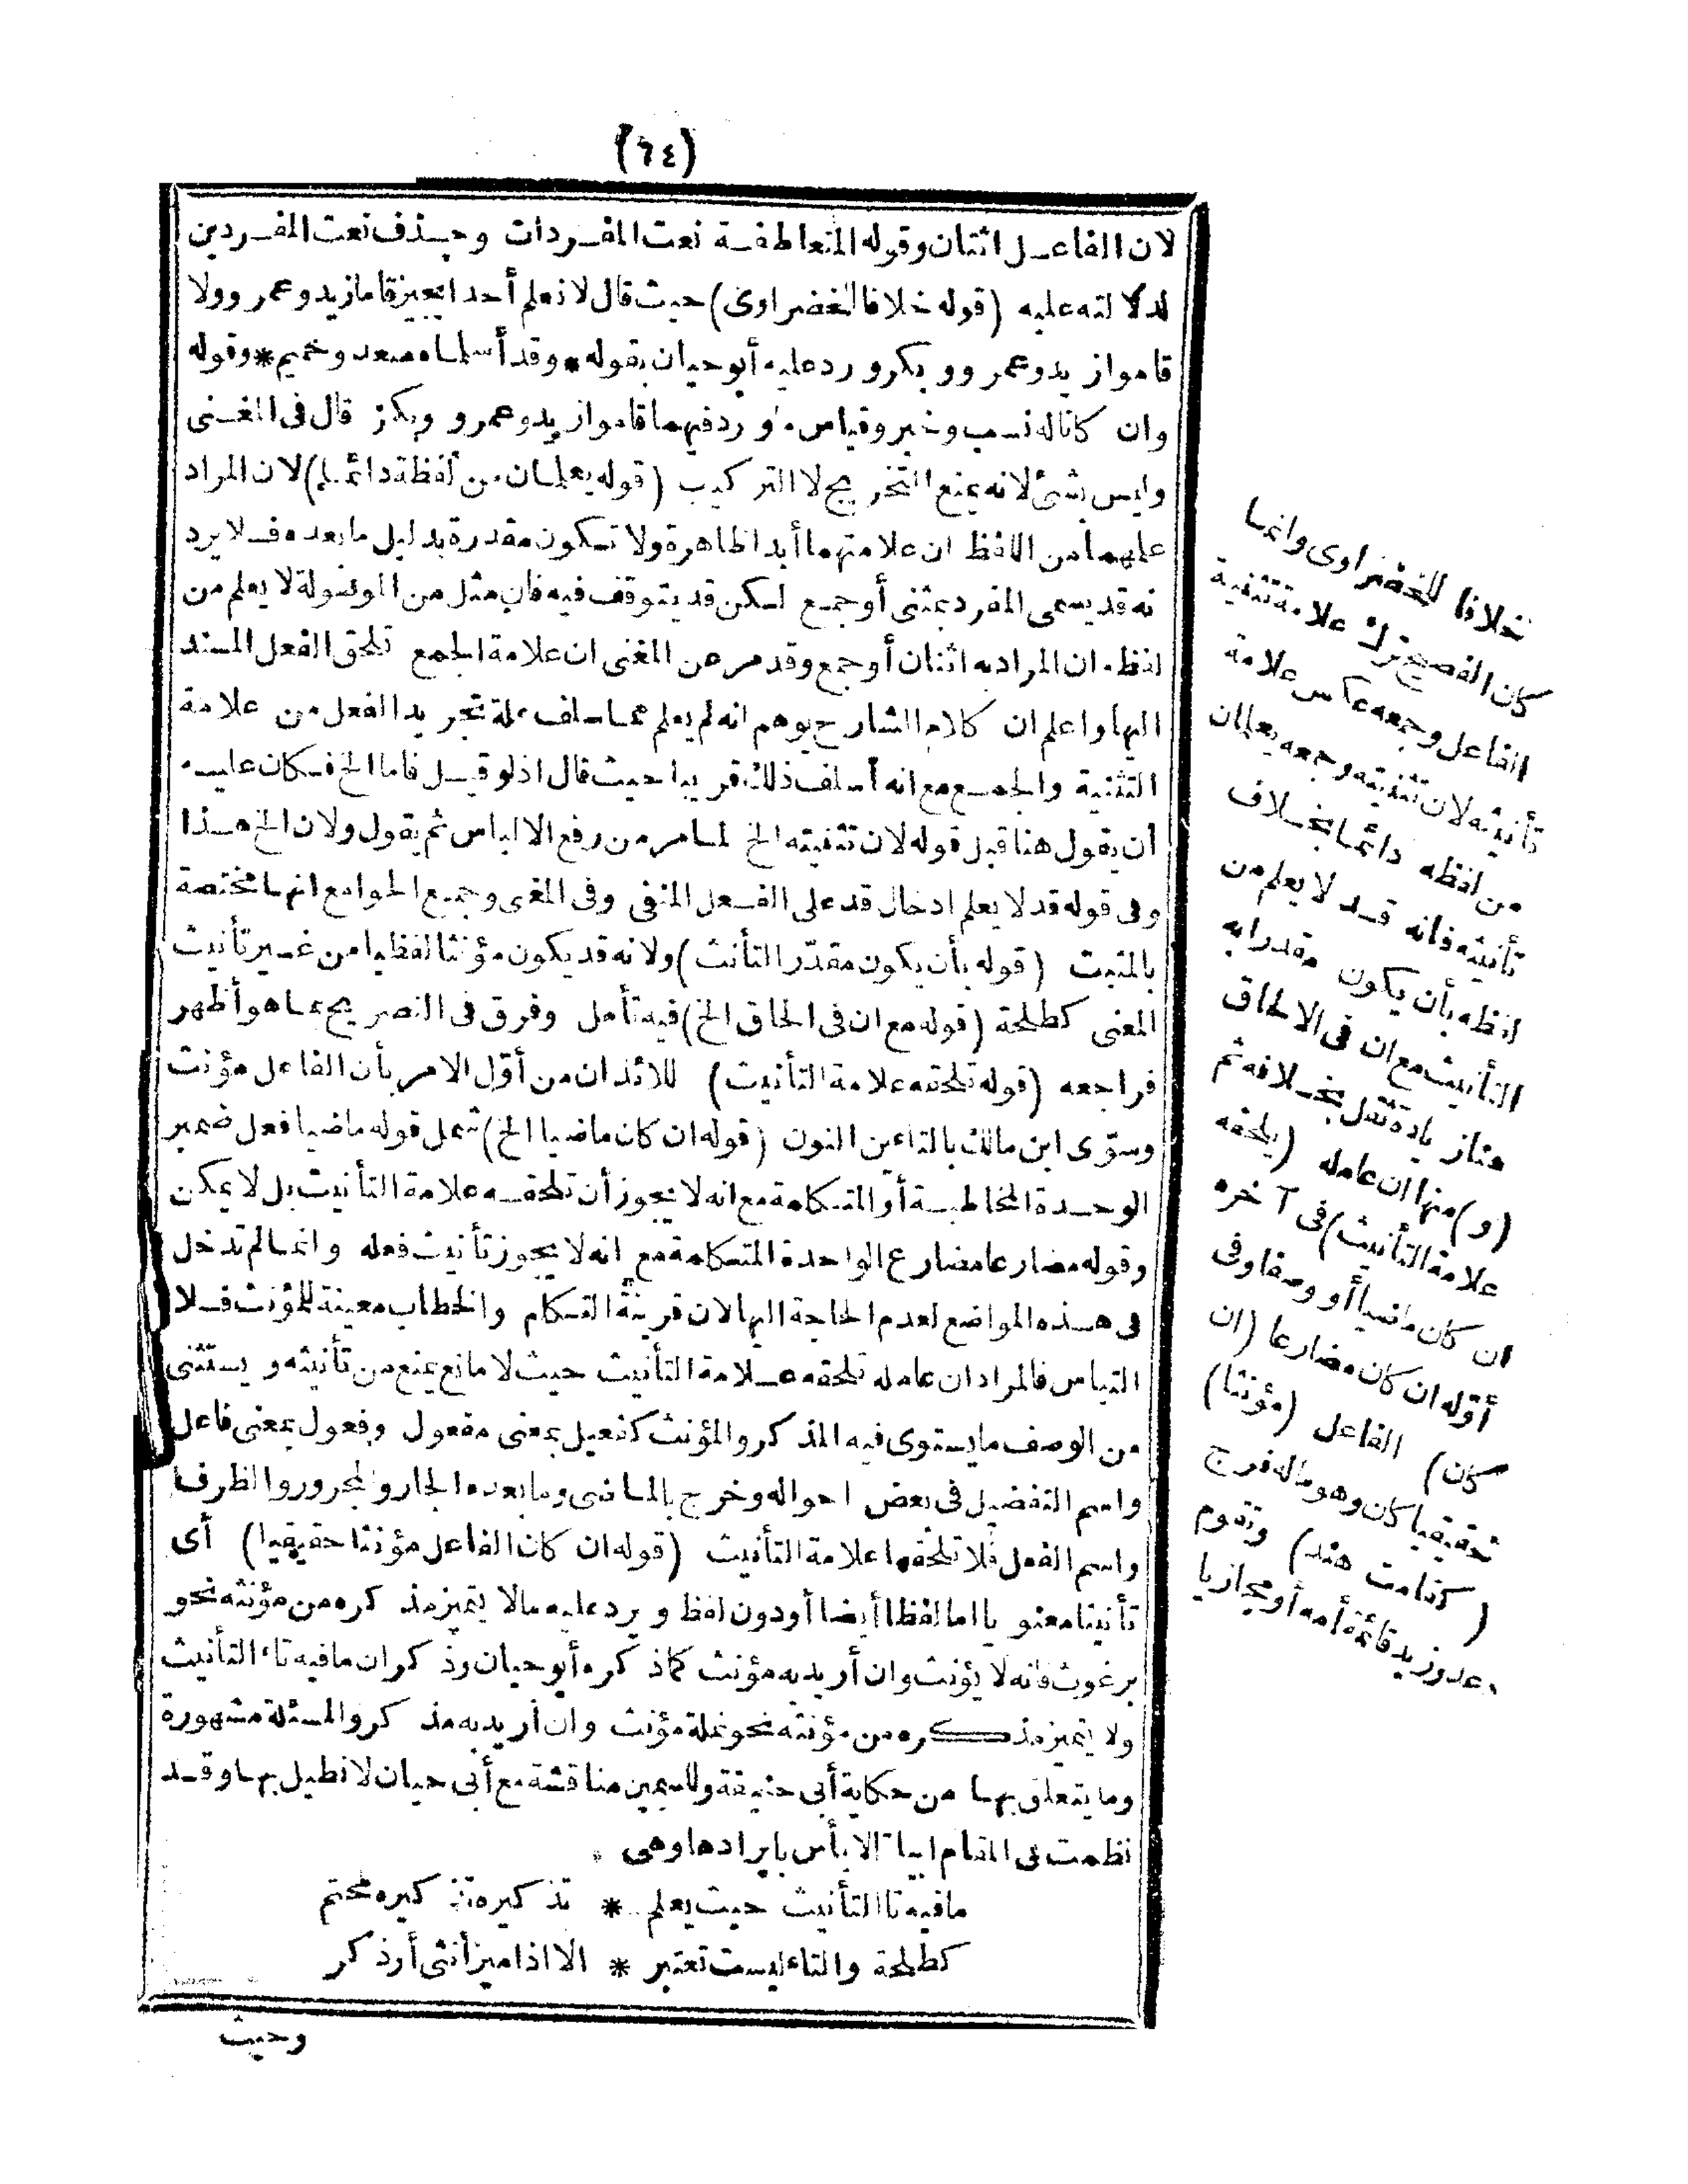 (٦٤)
لان الفاعل اثنتان وقوله المتعاطفة نعت المفردات وحذف نعت المفردين
لدلالته عليه (قوله خلافا للخضراوى) حيث قال لا نعلم أحدا يجيز قاما زيد وعمرو ولا
قاموا زيد وعمرو وبكر ورد عليه أبو حيان بقوله * وقد أسلماه مبعد وحميم * وقوله
وان كانا له نسب وخير وقياس، ورد فيهما قاموا زيد وعمرو وبكر قال فى المغنى
وليس بشئ لانه يمنع التخريج لا التركيب (قوله يعلمان من لفظة دائما) لان المراد
علمهما من اللفظ ان علامتهما أبدا ظاهرة ولا تكون مقدرة بدليل ما بعده فلا يرد
نه قد يسمى المفرد بمثنى أو جمع لكن قد يتوقف فيه فان مثل من الموصولة لا يعلم من
لفظه ان المراد به اثنان أو جمع وقد مر عن المغنى ان علامة الجمع تلحق الفعل المسند
اليها واعلم ان كلام الشارح يوهم انه لم يعلم مما سلف علة تجريد الفعل من علامة
التثنية والجمع مع انه أسلف ذلك قريبا حيث قال اذ لو قيل قاما الخ فكان عليه
أن يقول هنا قبل قوله لان تثنيته الخ لما مر من رفع الالباس ثم يقول ولان الخ هذا
وفى قوله قد لا يعلم ادخال قد على الفعل المنفى وفى المغنى وجميع الجوامع انها مختصة
بالمثبت (قوله بأن يكون مقدّر التأنث) ولانه قد يكون مؤنثا لفظيا من غير تأنيث
المعنى كطلحة (قوله مع ان فى الحاق الخ) فيه تأمل وفرق فى التصريح بما هو أظهر
فراجعه (قوله تلحقه علامة التأنيث) للايذان من أوّل الامر بأن الفاعل مؤنث
وسوّى ابن مالك بالتاء عن النون (قوله ان كان ماضيا الخ) شمل قوله ماضيا فعل ضمير
الوحدة المخاطبة أو المتكلمة مع انه لا يجوز أن تلحقه علامة التأنيث بل لا يمكن
وقوله مضارعا مضارع الواحدة المتكلمة مع انه لا يجوز تأنيث فعله وانما لم تدخل
فى هذه المواضع لعدم الحاجة اليها لان قرينة التكلم والخطاب معينة للمؤنث فلا
التباس فالمراد ان عامله تلحقه علامة التأنيث حيث لا مانع يمنع من تأنيثه ويستثنى
من الوصف ما يستوى فيه المذكر والمؤنث كفعيل بمعنى مفعول وفعول بمعنى فاعل
واسم التفضيل فى بعض احواله وخرج بالماضى وما بعده الجار والمجرور والظرف
واسم الفعل فلا تلحقها علامة التأنيث (قوله ان كان الفاعل مؤنثا حقيقيا) أى
تأنيثا معنويا اما لفظا أيضا أو دون لفظ ويرد عليه ما لا يتميز مذكره من مؤنثه نحو
برغوث فانه لا يؤنث وان أريد به مؤنث كما ذكره أبو حيان وذكر ان ما فيه تاء التأنيث
ولا يتميز مذكره من مؤنثه نحو نملة مؤنث وان أريد به مذكر والمسئلة مشهورة
وما يتعلق بها من حكاية أبى حنيفة وللسمين مناقشة مع أبى حيان لا نطيل بها وقد
نظمت فى المقام ابياتا لا بأس بايرادها وهى
ما فيه تا التأنيث حيث يعلم * تذكيره تذكيره محتم
كطلحة والتاء ليست تعتبر * الا اذا ميز أنثى أو ذكر
وحيث
خلافا للخضراوى وانما
كان الفصيح ترك علامة تثنية
الفاعل وجمعه عكس علامة
تأنيثه لان تثنيته وجمعه يعلمان
من لفظه دائما بخلاف
تأنيثه فانه قد لا يعلم من
لفظه بأن يكون مقدرا به
التأنيث مع ان فى الالحاق
هنا زيادة ثقل بخلافه ثم
(و) منها ان عامله (يلحقه
علامة التأنيث) فى آخره
ان كان ماضيا أو وصفا وفى
أوّله ان كان مضارعا (ان
كان) الفاعل (مؤنثا)
حقيقيا كان وهو ما له فرج
(كقامت هند) وتقوم
دعد وزيد قائمة أمه أو مجازيا